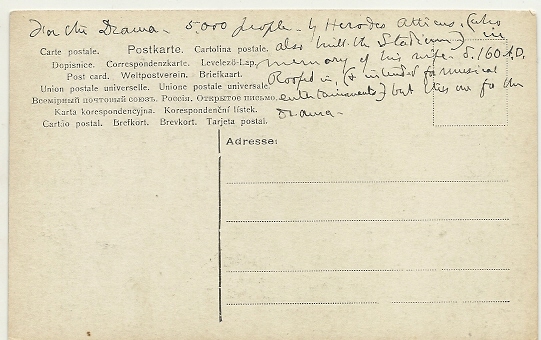 For the Drama - 5,000 people - by Herodes Atticus, (who
also built the Stadium) in
memory of his wife. d. 160 A.D.
Roofed in, (& intended for musical
entertainments) but this one for the
Drama -
Carte postale. Postkarte. Cartolina postale.
Dopisnice. Correspondenzkarte. Levelező-Lap.
Post card. Weltpostverein. Briefkaart.
Union postale universelle. Unione postale universale.
Всемірный почтовый союзъ. Россія. Открытое письмо.
Karta korespondencyjna. Korespondenční lístek.
Cartão postal. Brefkort. Brevkort. Tarjeta postal.
Adresse: